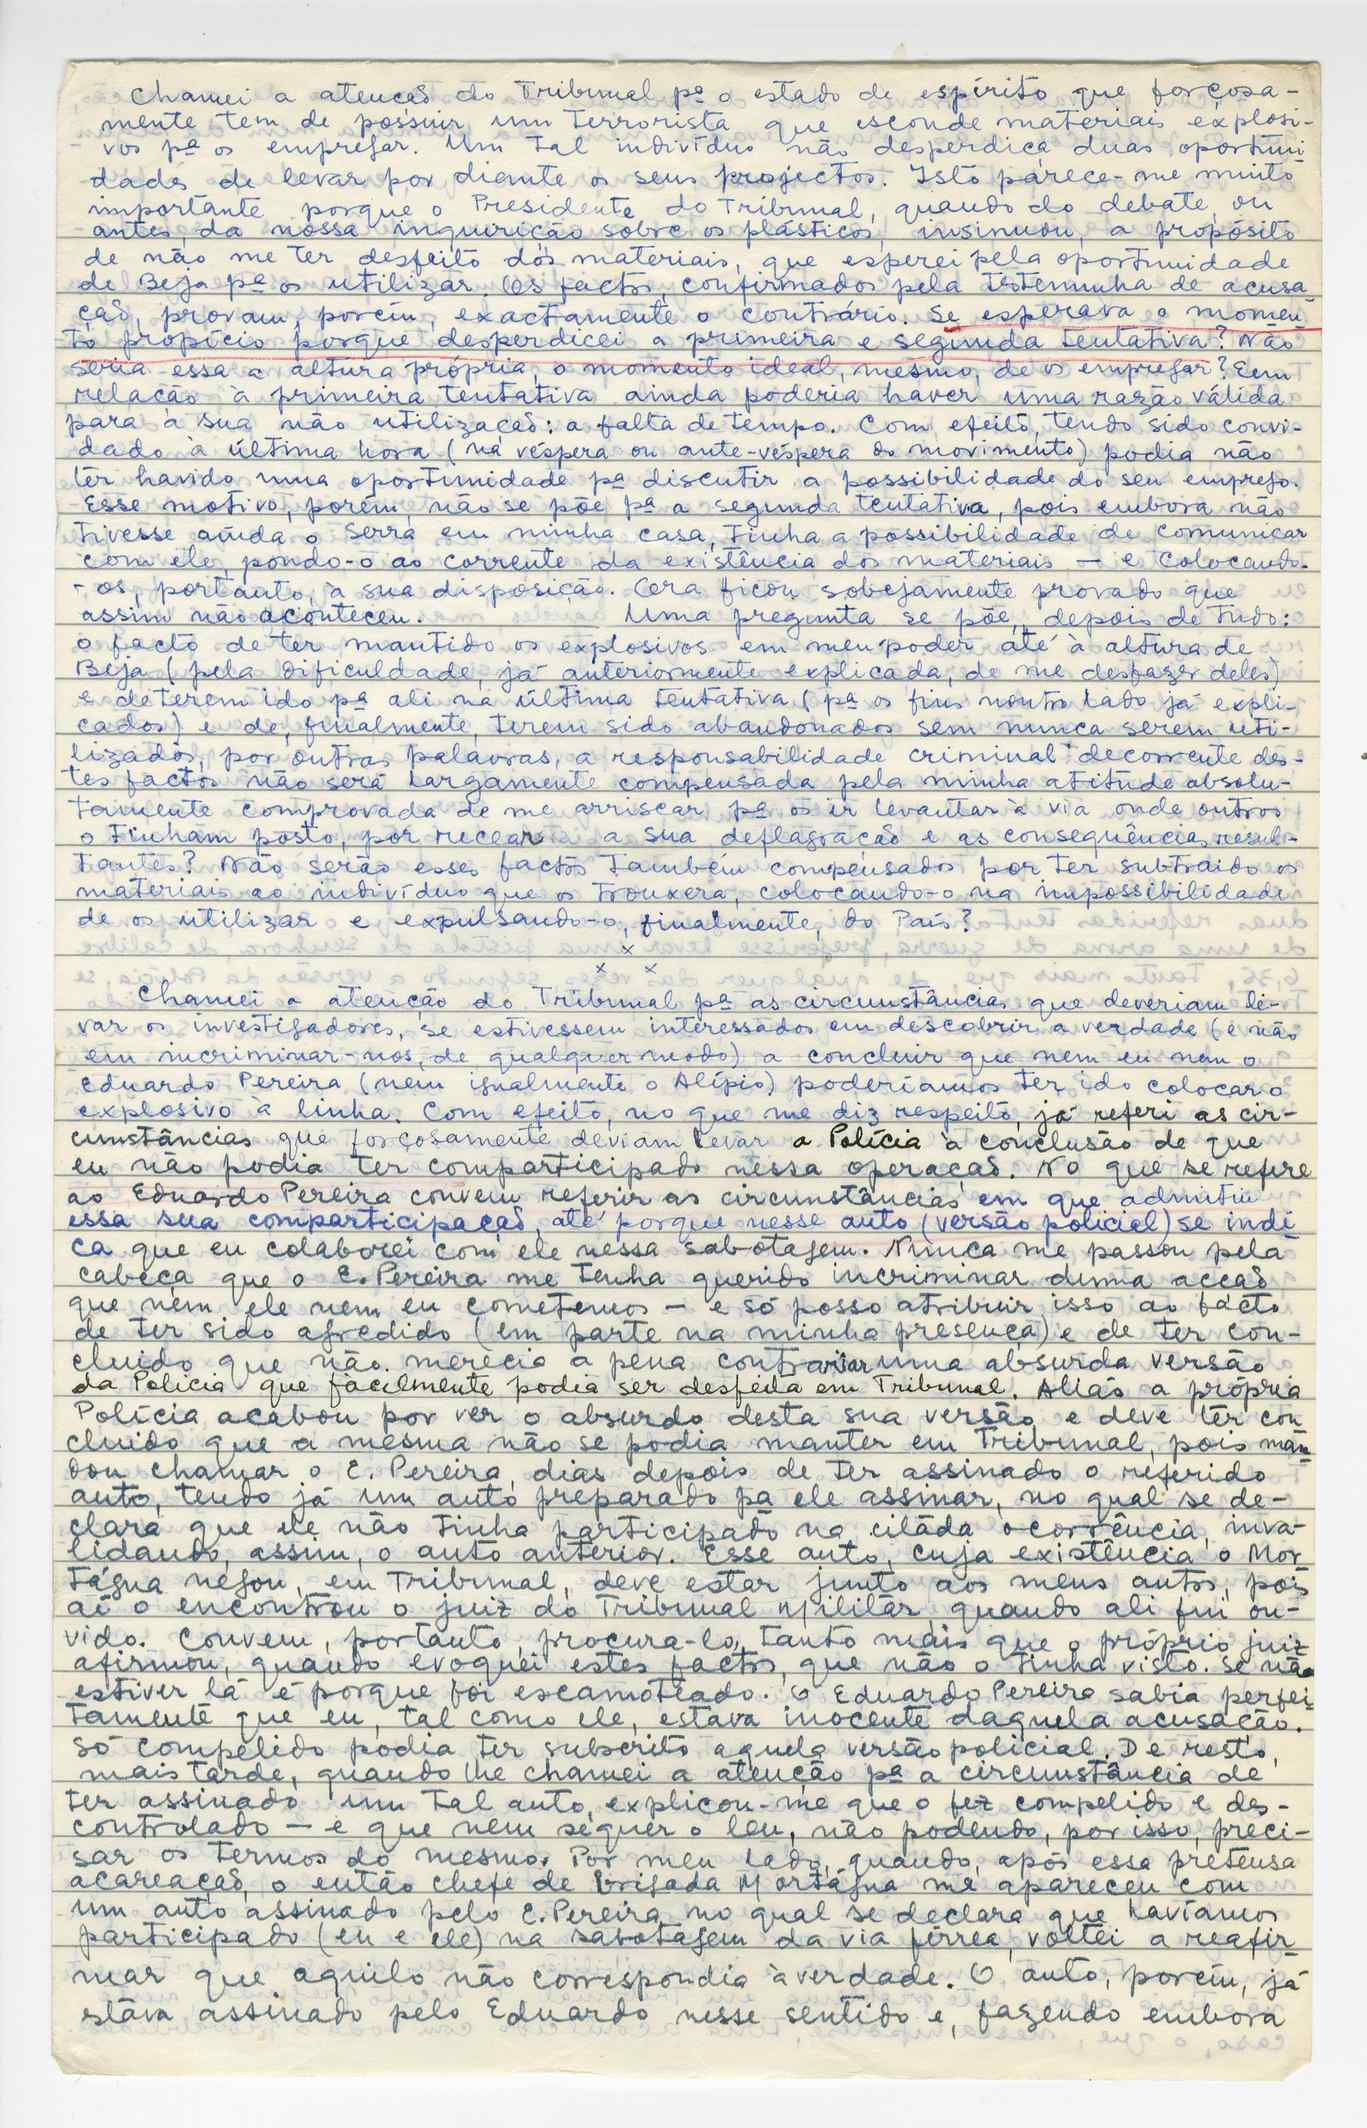 Chamei a atenção do Tribunal pª o estado de espírito que forçosa-
mente tem de possuir um terrorista que esconde materiais explosi-
vos pª os empregar. Um tal indivíduo não desperdiça duas oportuni
dades de levar por diante os seus projectos. Isto parece-me muito
importante porque o Presidente do Tribunal, quando do debate, ou
antes, da nossa inquirição sobre os plásticos, insinuou, a propósito
de não me ter desfeito dos materiais, que esperei pela oportunidade
de Beja pª os utilizar. Os factos, confirmados pela testemunha de acusa
ção, provam, porém, exactamente o contrário. Se esperava o momen
to propício porque desperdicei a primeira e segunda tentativa? Não
seria essa a altura própria, o momento ideal, mesmo, de os empregar? Em
relação à primeira tentativa ainda poderia haver uma razão válida
para a sua não utilização: a falta de tempo. Com efeito, tendo sido convi-
dado à última hora (na véspera ou ante-véspera do movimento) podia não
ter havido uma oportunidade pª discutir a possibilidade do seu emprego.
Esse motivo, porém, não se põe pª a segunda tentativa, pois embora não
tivesse ainda o Serra em minha casa, tinha a possibilidade de comunicar
com ele, pondo-o ao corrente da existência dos materiais — e colocando-
-os, portanto, à sua disposição. Ora ficou sobejamente provado que
assim não aconteceu. Uma pregunta se põe, depois de tudo:
o facto de ter mantido os explosivos em meu poder até à altura de
Beja (pela dificuldade, já anteriormente explicada, de me desfazer deles)
e de terem ido pª ali na última tentativa (pª os fins noutro lado já expli-
cados) e de, finalmente, terem sido abandonados sem nunca serem uti-
lizados, por outras palavras, a responsabilidade criminal decorrente des-
tes factos não será largamente compensada pela minha atitude absolu-
tamente comprovada de me arriscar pª os ir levantar à via onde outros
o tinham posto, por recear a sua deflagração e as consequências resul-
tantes? Não serão esses factos também compensados por ter subtraido os
materiais ao indivíduo que os trouxera, colocando-o na impossibilidade
de os utilizar e expulsando-o, finalmente, do País?
x
x x
Chamei a atenção do Tribunal pª as circunstâncias que deveriam le-
var os investigadores, se estivessem interessados em descobrir a verdade (e não
em incriminar-nos, de qualquer modo) a concluir que nem eu nem o
Eduardo Pereira (nem igualmente o Alípio) poderíamos ter ido colocar o
explosivo à linha. Com efeito, no que me diz respeito, já referi as cir-
cunstâncias que forçosamente deviam levar a Polícia à conclusão de que
eu não podia ter comparticipado nessa operação. No que se refere
ao Eduardo Pereira convem referir as circunstâncias em que admitiu
essa sua comparticipação, até porque nesse auto (versão policial) se indi
ca que eu colaborei com ele nessa sabotagem. Nunca me passou pela
cabeça que o E. Pereira me tenha querido incriminar duma acção
que nem ele nem eu cometemos — e só posso atribuir isso ao facto
de ter sido agredido (em parte na minha presença) e de ter con-
cluido que não merecia a pena contrariar uma absurda versão
da Polícia que facilmente podia ser desfeita em Tribunal. Aliás a própria
Polícia acabou por ver o absurdo desta sua versão e deve ter con
cluido que a mesma não se podia manter em Tribunal, pois man
dou chamar o E. Pereira, dias depois de ter assinado o referido
auto, tendo já um auto preparado pª ele assinar, no qual se de-
clara que ele não tinha participado na citada ocorrência, inva-
lidando, assim, o auto anterior. Esse auto, cuja existência o Mor
tágua negou, em Tribunal, deve estar junto aos meus autos, pois
aí o encontrou o juiz do Tribunal Militar, quando ali fui ou-
vido. Convem, portanto, procura-lo, tanto mais que o próprio juiz
afirmou, quando evoquei estes factos, que não o tinha visto. Se não
estiver lá é porque foi escamoteado. O Eduardo Pereira sabia perfei
tamente que eu, tal como ele, estava inocente daquela acusação.
Só compelido podia ter subscrito aquela versão policial. De resto,
mais tarde, quando lhe chamei a atenção pª a circunstância de
ter assinado um tal auto, explicou-me que o fez compelido e des-
controlado — e que nem sequer o leu, não podendo, por isso, preci-
sar os termos do mesmo. Por meu lado, quando, após essa pretensa
acareação, o então chefe de brigada Mortágua me apareceu com
um auto assinado pelo E. Pereira no qual se declara que havíamos
participado (eu e ele) na sabotagem da via férrea, voltei a reafir
mar que aquilo não correspondia à verdade. O auto, porém, já
estava assinado pelo Eduardo nesse sentido e, fazendo embora